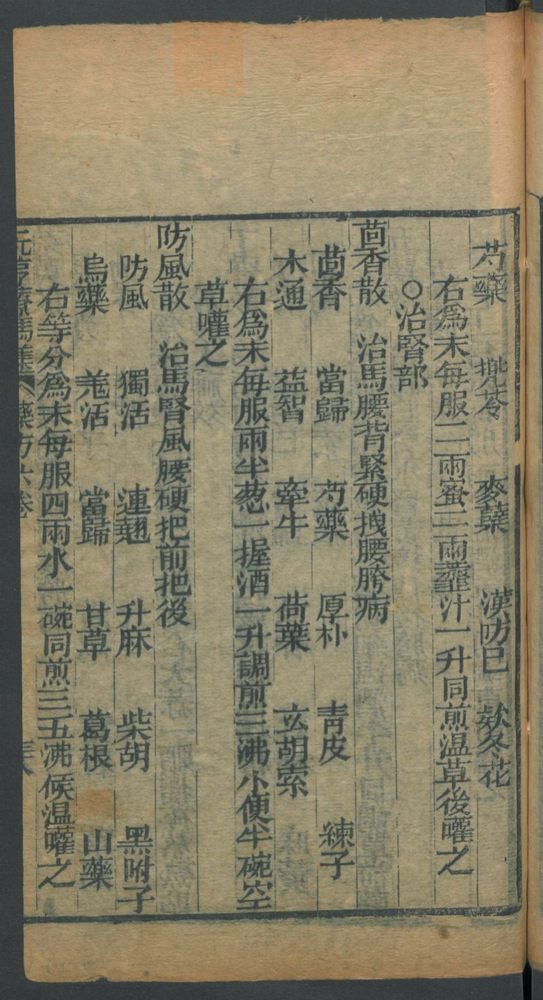 芍藥 兠苓 麥蘖 漢防巳 欵冬花
右爲末每服二兩蜜二兩虀汁一升同煎温草後嚾之
○治腎部
茴香散 治馬腰背緊硬拽腰胯病
茴香 當歸 芍藥 厚朴 青皮 練子
木通 益智 牽牛 荷葉 玄胡索
右爲末每服兩半葱一握酒一升調煎三沸小便半碗空
草嚾之
防風散 治馬腎風腰硬把前把後
防風 獨活 連翹 升麻 柴胡 黑附子
烏藥 羌活 當歸 甘草 葛根 山藥
右等分爲末每服四兩水一碗同煎三五沸候温嚾之
元亨療馬集 藥方六卷